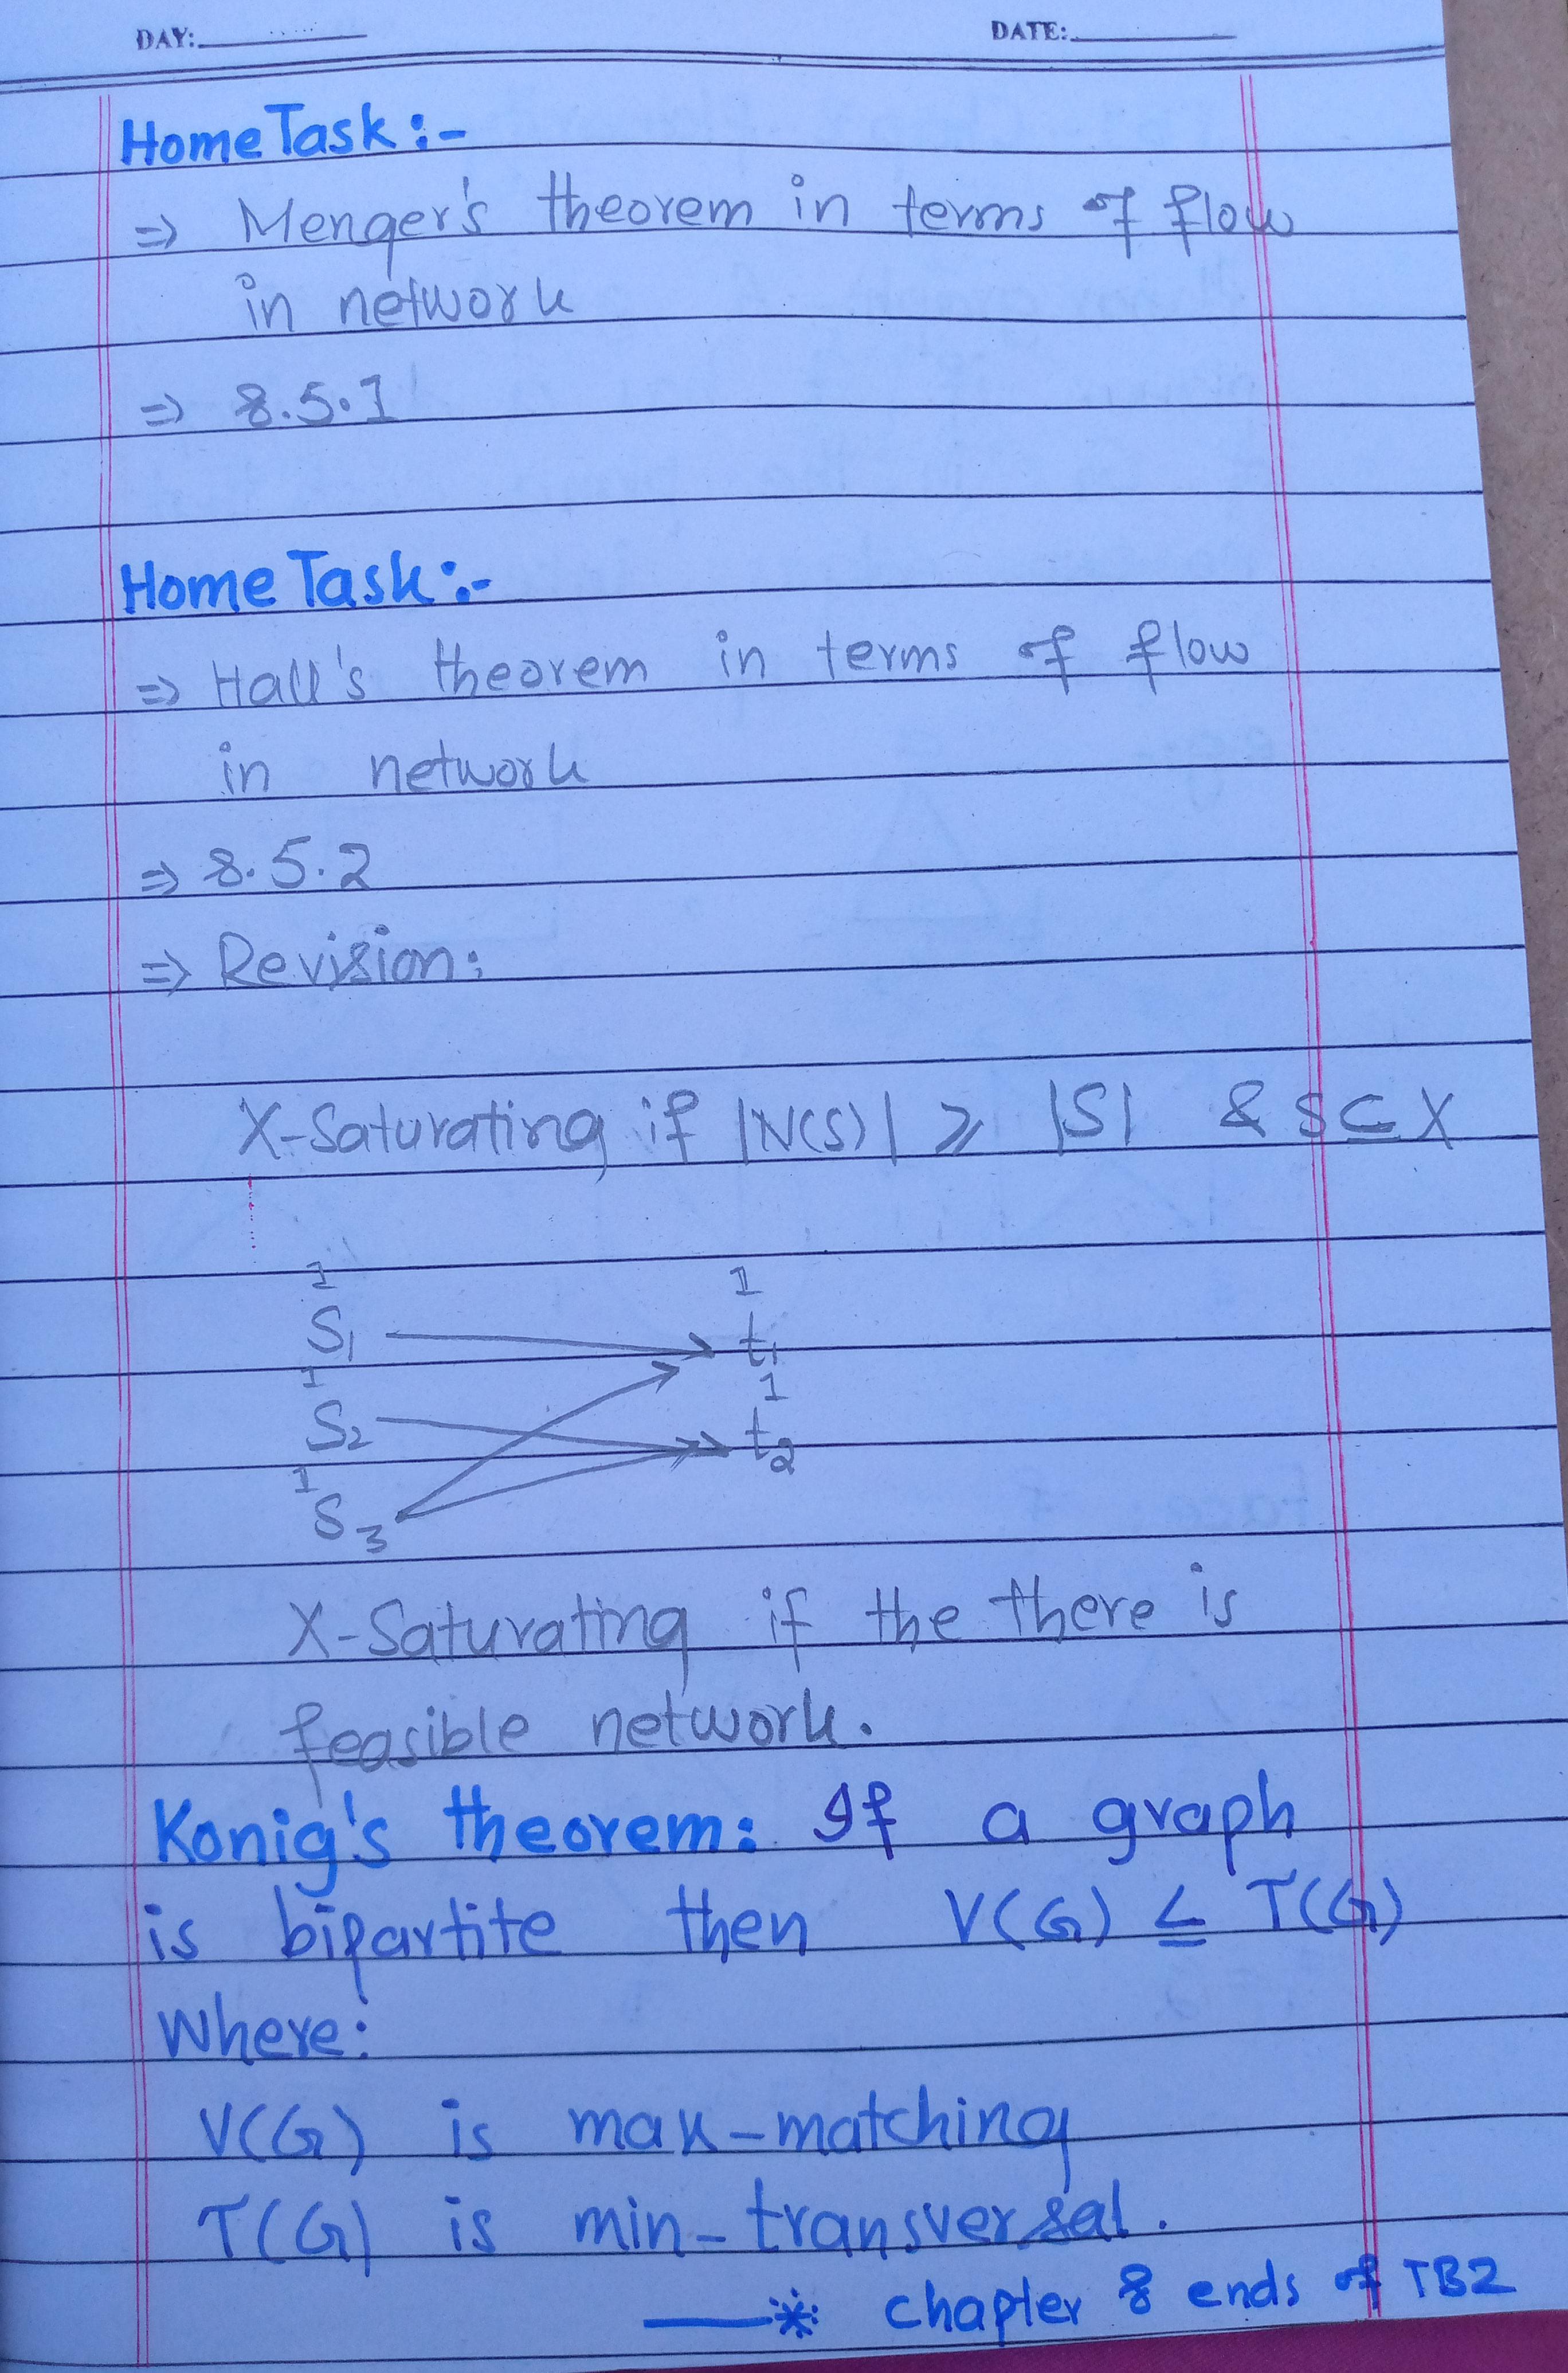 DAY:
DATE:
Home Task :-
⇒ Menger's theorem in terms of flow
in network
⇒ 8.5.1
Home Task :-
⇒ Hall's theorem in terms of flow
in network
⇒ 8.5.2
⇒ Revision:
X-Saturating if |N(S)| ⩾ |S| & S ⊆ X
1 1
S1 t1
1 1
S2 t2
1
S3
X-Saturating if the there is
feasible network.
Konig's theorem: If a graph
is bipartite then V(G) ≤ T(G)
Where:
V(G) is max-matching
T(G) is min-transversal.
—* chapter 8 ends of TB2